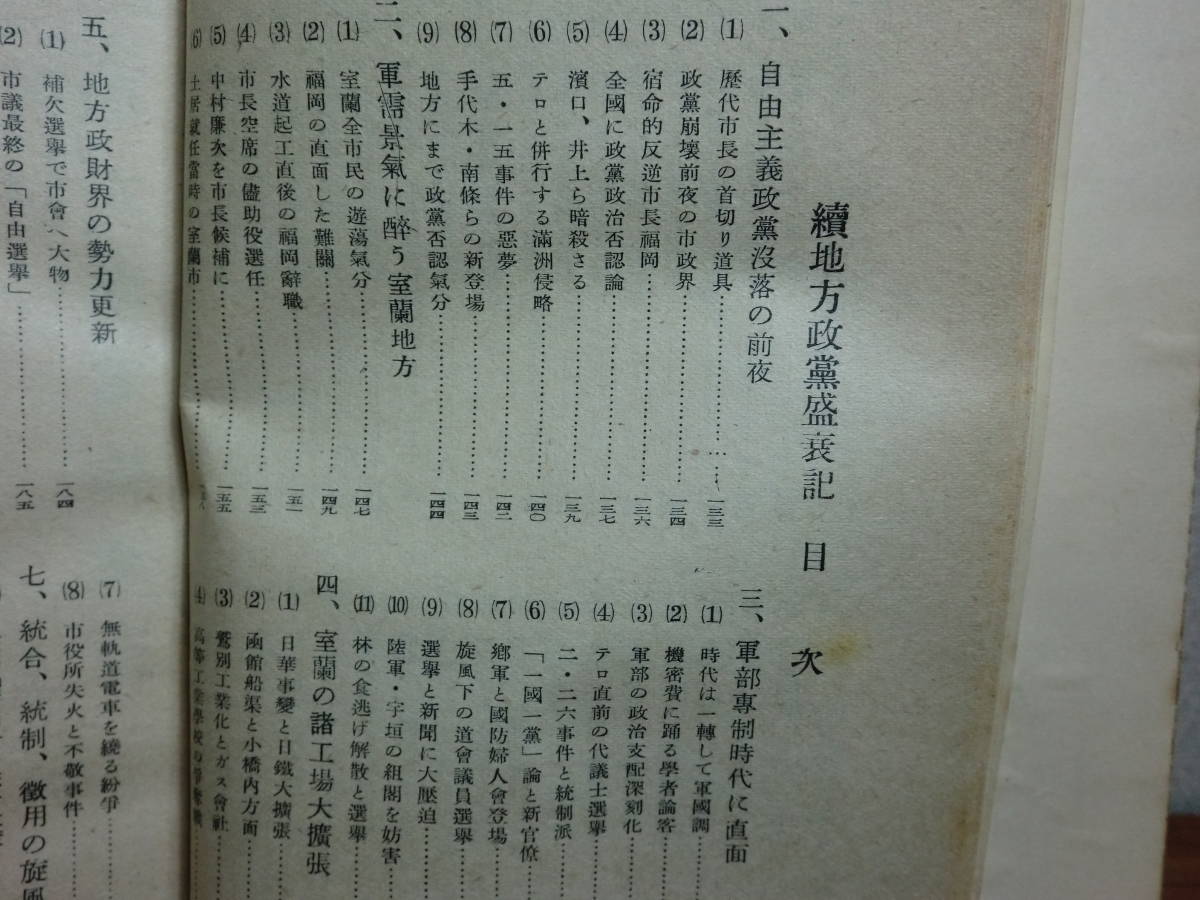 續地方政黨盛衰記 目次
一、自由主義政黨沒落の前夜
(1) 歷代市長の首切り道具……一三三
(2) 政黨崩壞前夜の市政界……一三四
(3) 宿命的反逆市長福岡……一三六
(4) 全國に政黨政治否認論……一三七
(5) 濱口、井上ら暗殺さる……一三九
(6) テロと併行する滿洲侵略……一四〇
(7) 五・一五事件の惡夢……一四二
(8) 手代木・南條らの新登場……一四三
(9) 地方にまで政黨否認氣分……一四四
二、軍需景氣に醉う室蘭地方
(1) 室蘭全市民の遊蕩氣分……一四七
(2) 福岡の直面した難關……一四九
(3) 水道起工直後の福岡辭職……一五一
(4) 市長空席の儘助役選任……一五三
(5) 中村廉次を市長候補に……一五五
(6) 土居就任當時の室蘭市……
三、軍部專制時代に直面
(1) 時代は一轉して軍國調……
(2) 機密費に踊る學者論客……
(3) 軍部の政治支配深刻化……
(4) テロ直前の代議士選擧……
(5) 二・二六事件と統制派……
(6) 「一國一黨」論と新官僚……
(7) 鄕軍と國防婦人會登場……
(8) 旋風下の道會議員選擧……
(9) 選擧と新聞に大壓迫……
(10) 陸軍・宇垣の組閣を妨害……
(11) 林の食逃げ解散と選擧……
四、室蘭の諸工場大擴張
(1) 日華事變と日鐵大擴張……
(2) 函館船渠と小橋内方面……
(3) 鷲別工業化とガス會社……
(4) 高等工業學校の爭奪戰……
五、地方政財界の勢力更新
(1) 補欠選擧で市會へ大物……一八四
(2) 市議最終の「自由選擧」……一八五
(7) 無軌道電車を繞る紛爭……
(8) 市役所失火と不敬事件……
七、統合、統制、徵用の旋風